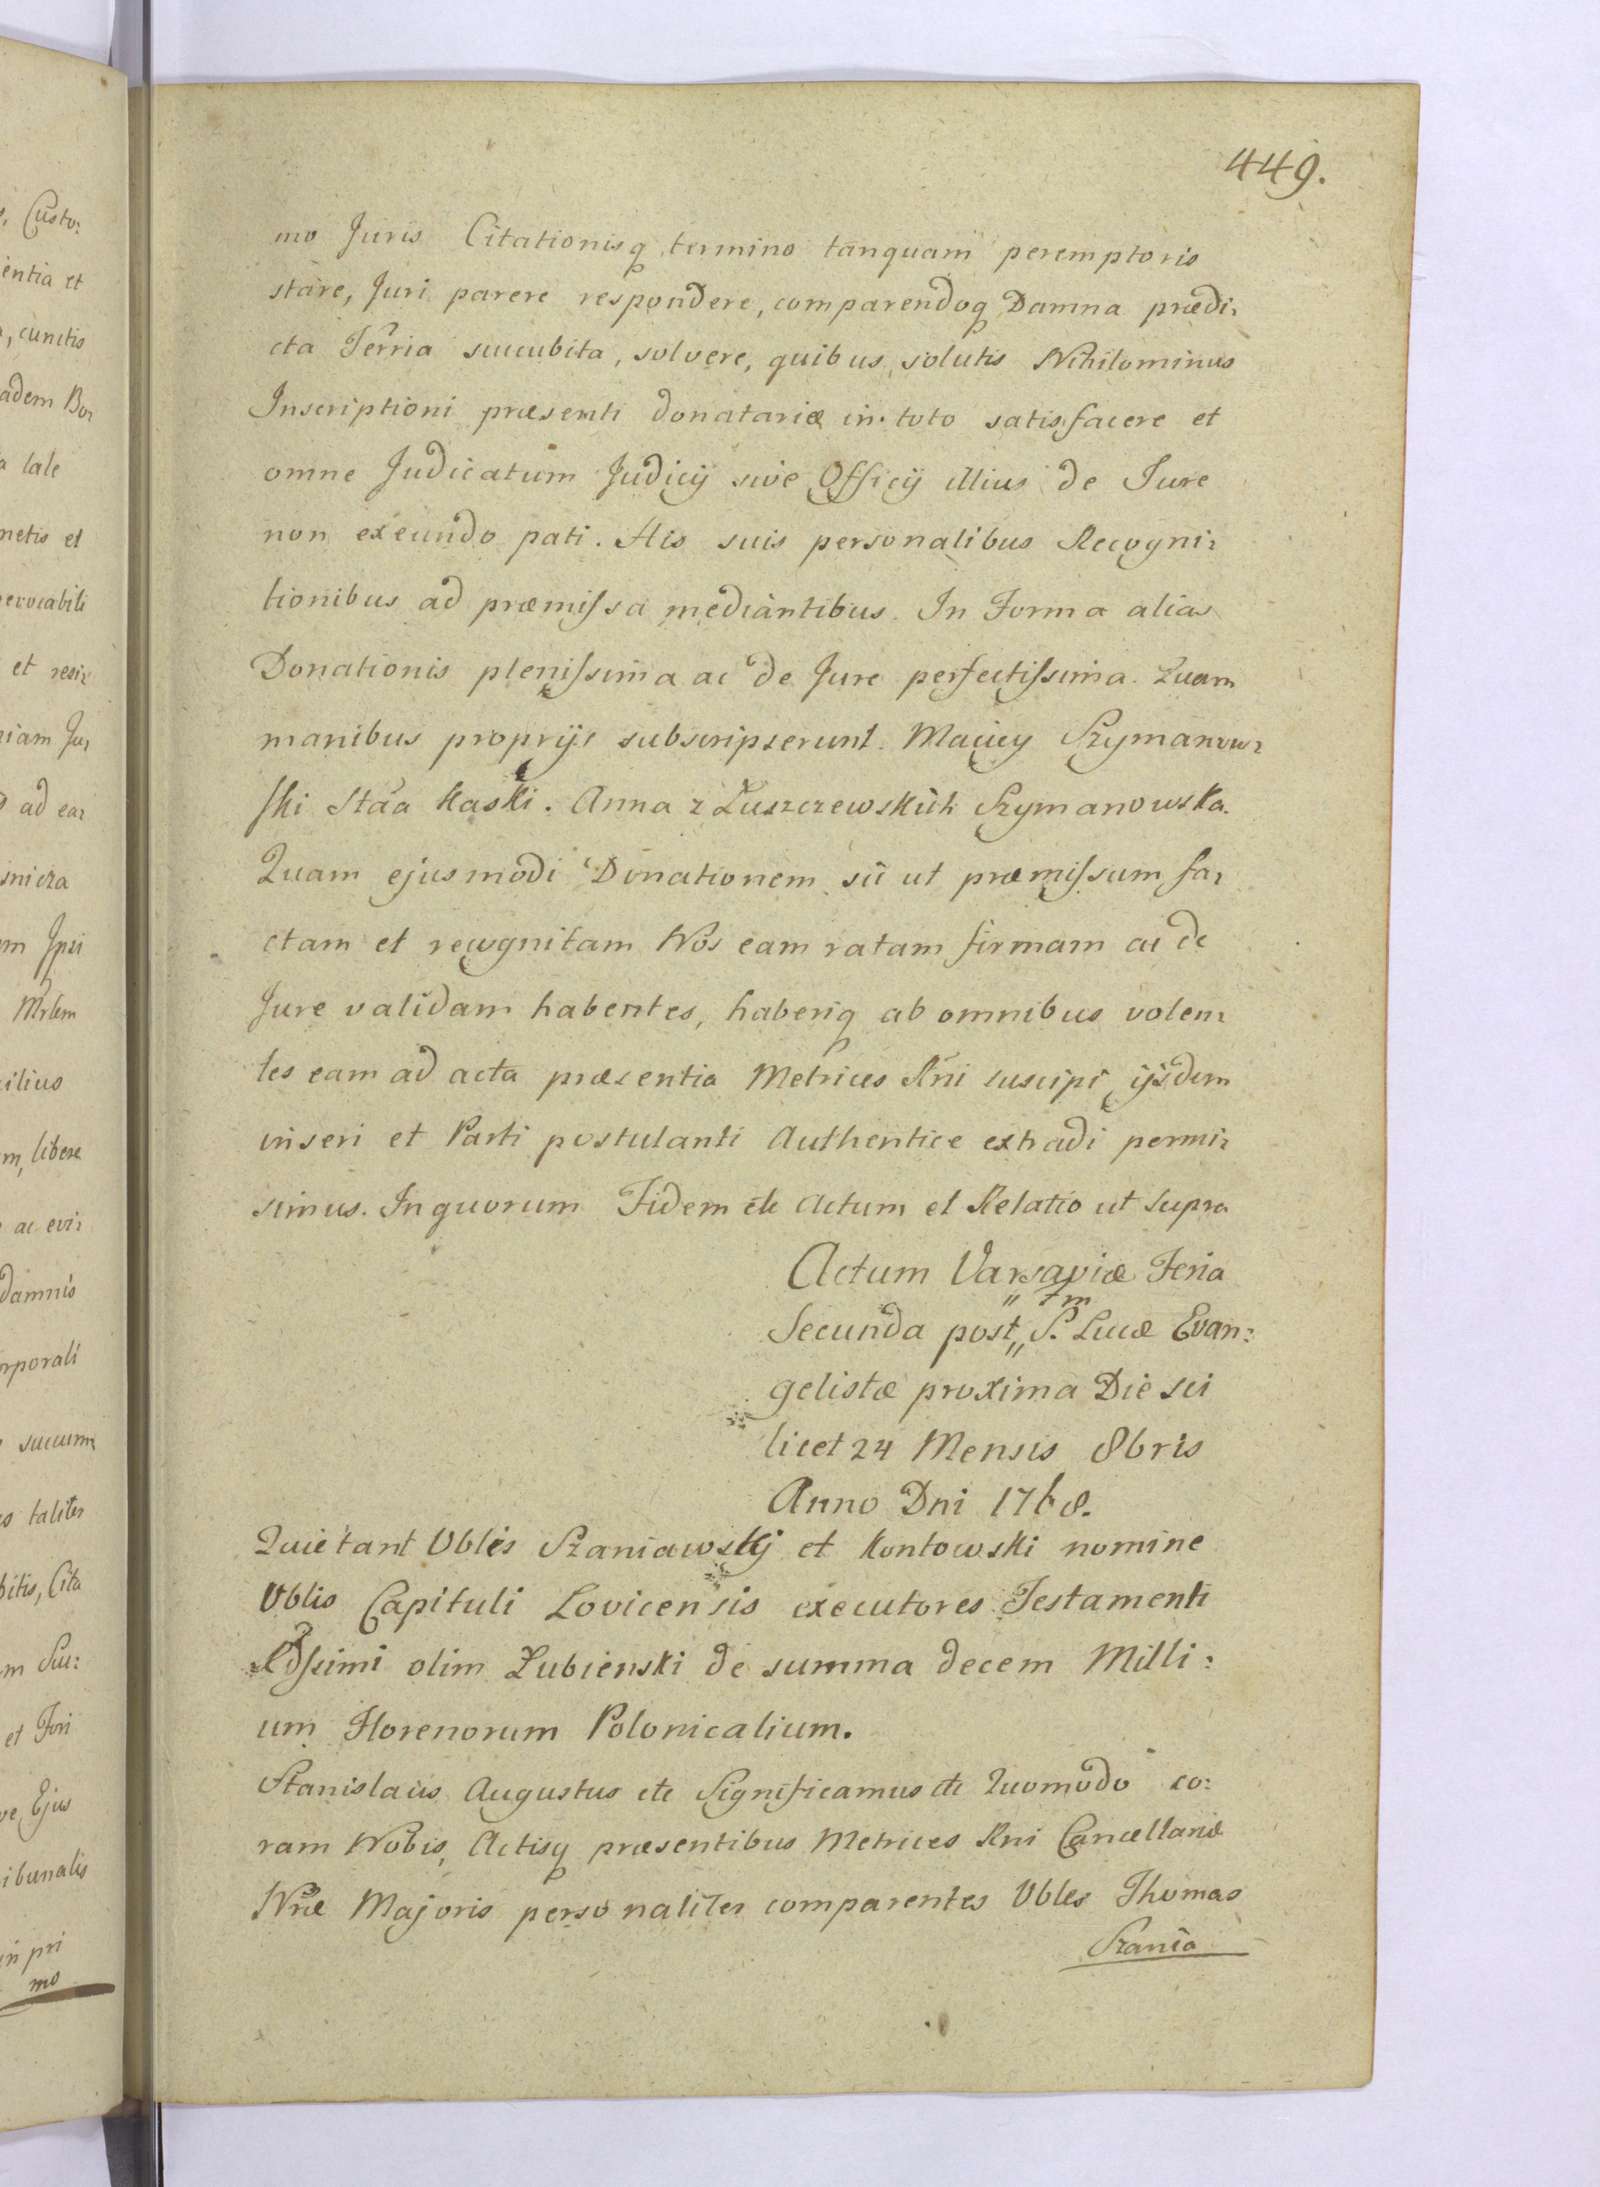 449.
mo Juris Citationisq termino tanquam peremptorio
stare, Juri parere respondere, comparendoq Damna prædi:
cta Terria succubita, solvere, quibus solutis Nihilominus
Inscriptioni præsenti donatariæ in toto satisfacere et
omne Judicatum Judicij sive Officij illius de Jure
non exeundo pati. His suis personalibus Recogni:
tionibus ad præmissa mediantibus. In Forma alias
Donationis plenissima ac de Jure perfectissima. Quam
manibus proprijs subscripserunt. Maciey Szymanow:
ski Stta Kaski. Anna z Łuszczewskich Szymanowska.
Quam ejusmodi Donationem sic ut præmissum fa:
ctam et recognitam Nos eam ratam firmam ac de
Jure validam habentes, haberiq ab omnibus volen:
tes eam ad acta præsentia Metrices Rni suscipi ijsdem
inseri et Parti postulanti Authentice extradi permi:
simus. In quorum Fidem etc Actum et Relatio ut supra
Actum Varsaviæ Feria
Secunda post S. Lucæ Evan:
gelistæ proxima Die sci
licet 24 Mensis 8bris
Anno Dni 1768.
Quietant Vbles Szaniawskj et Kontowski nomine
Vblis Capituli Lovicensis executores Testamenti
olim Łubienski de summa decem Milli:
um Florenorum Polonicalium.
Stanislaus Augustus etc Significamus etc Quomodo co:
ram Nobis, Actisq præsentibus Metrices Rni Cancellariæ
Nræ Majoris personaliter comparentes Vbles Thomas
Szania